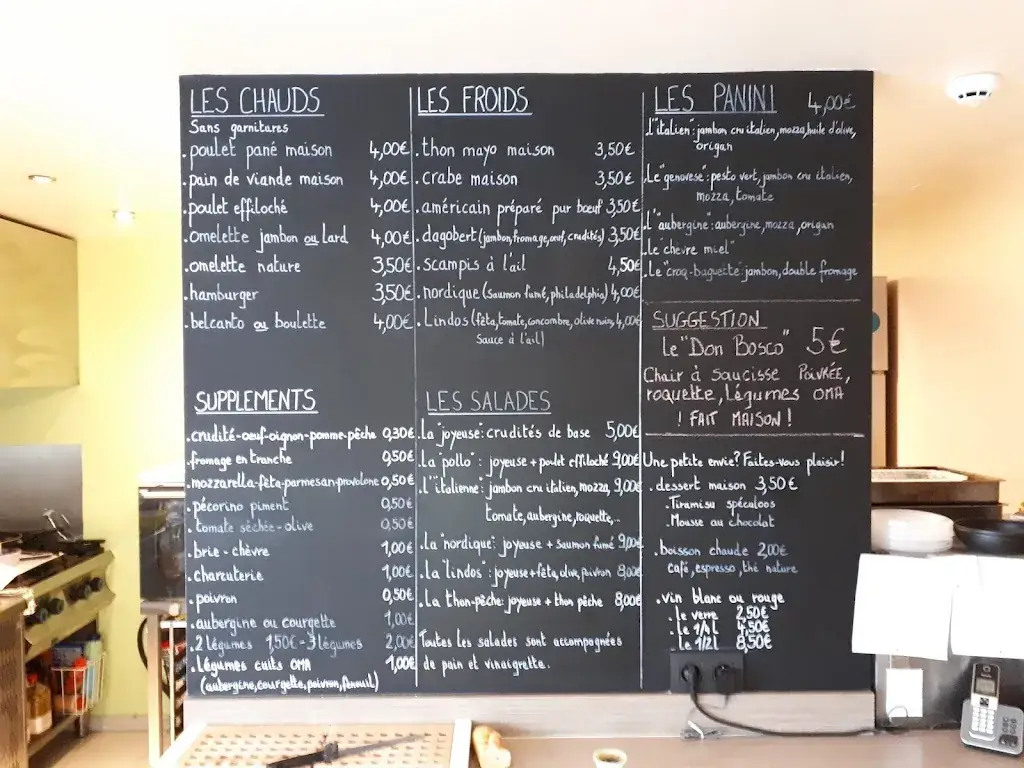 LES CHAUDS
Sans garnitures
. poulet pané maison 4,00€
. pain de viande maison 4,00€
. poulet effiloché 4,00€
. omelette jambon ou lard 4,00€
. omelette nature 3,50€
. hamburger 3,50€
. belcanto ou boulette 4,00€
SUPPLEMENTS
. crudité-oeuf-oignon-pomme-pêche 0,30€
. fromage en tranche 0,50€
. mozzarella-fêta-parmesan-provolone 0,50€
. pécorino piment 0,50€
. tomate séchée-olive 0,50€
. brie - chèvre 1,00€
. charcuterie 1,00€
. poivron 0,50€
. aubergine ou courgette 1,00€
. 2 légumes 1,50€ - 3 légumes 2,00€
. légumes cuits OMA 1,00€
(aubergine, courgette, poivron, fenouil)
LES FROIDS
. thon mayo maison 3,50€
. crabe maison 3,50€
. américain préparé pur bœuf 3,50€
. dagobert (jambon, fromage, œuf, crudités) 3,50€
. scampis à l'ail 4,50€
. nordique (saumon fumé, philadelphia) 4,00€
. Lindos (fêta, tomate, concombre, olive noire, 4,00€
sauce à l'ail)
LES SALADES
. la "joyeuse": crudités de base 5,00€
. la "pollo": joyeuse + poulet effiloché 9,00€
. l'"italienne": jambon cru italien, mozza, 9,00€
tomate, aubergine, roquette,...
. la "nordique": joyeuse + saumon fumé 9,00€
. la "lindos": joyeuse + fêta, olive, poivron 8,00€
. la thon-pêche: joyeuse + thon pêche 8,00€
Toutes les salades sont accompagnées
de pain et vinaigrette.
LES PANINI 4,00€
. l'"italien": jambon cru italien, mozza, huile d'olive,
origan
. Le "genovese": pesto vert, jambon cru italien,
mozza, tomate
. l'"aubergine": aubergine, mozza, origan
. le "chèvre miel"
. le "croq-baguette": jambon, double fromage
SUGGESTION
Le "DON BOSCO" 5€
Chair à saucisse POIVRÉE,
roquette, légumes OMA
! FAIT MAISON !
Une petite envie? Faites-vous plaisir!
. dessert maison 3,50€
. Tiramisu spéculoos
. Mousse au chocolat
. boisson chaude 2,00€
café, espresso, thé nature
. vin blanc ou rouge
. le verre 2,50€
. le 1/4l 4,50€
. le 1/2l 8,50€